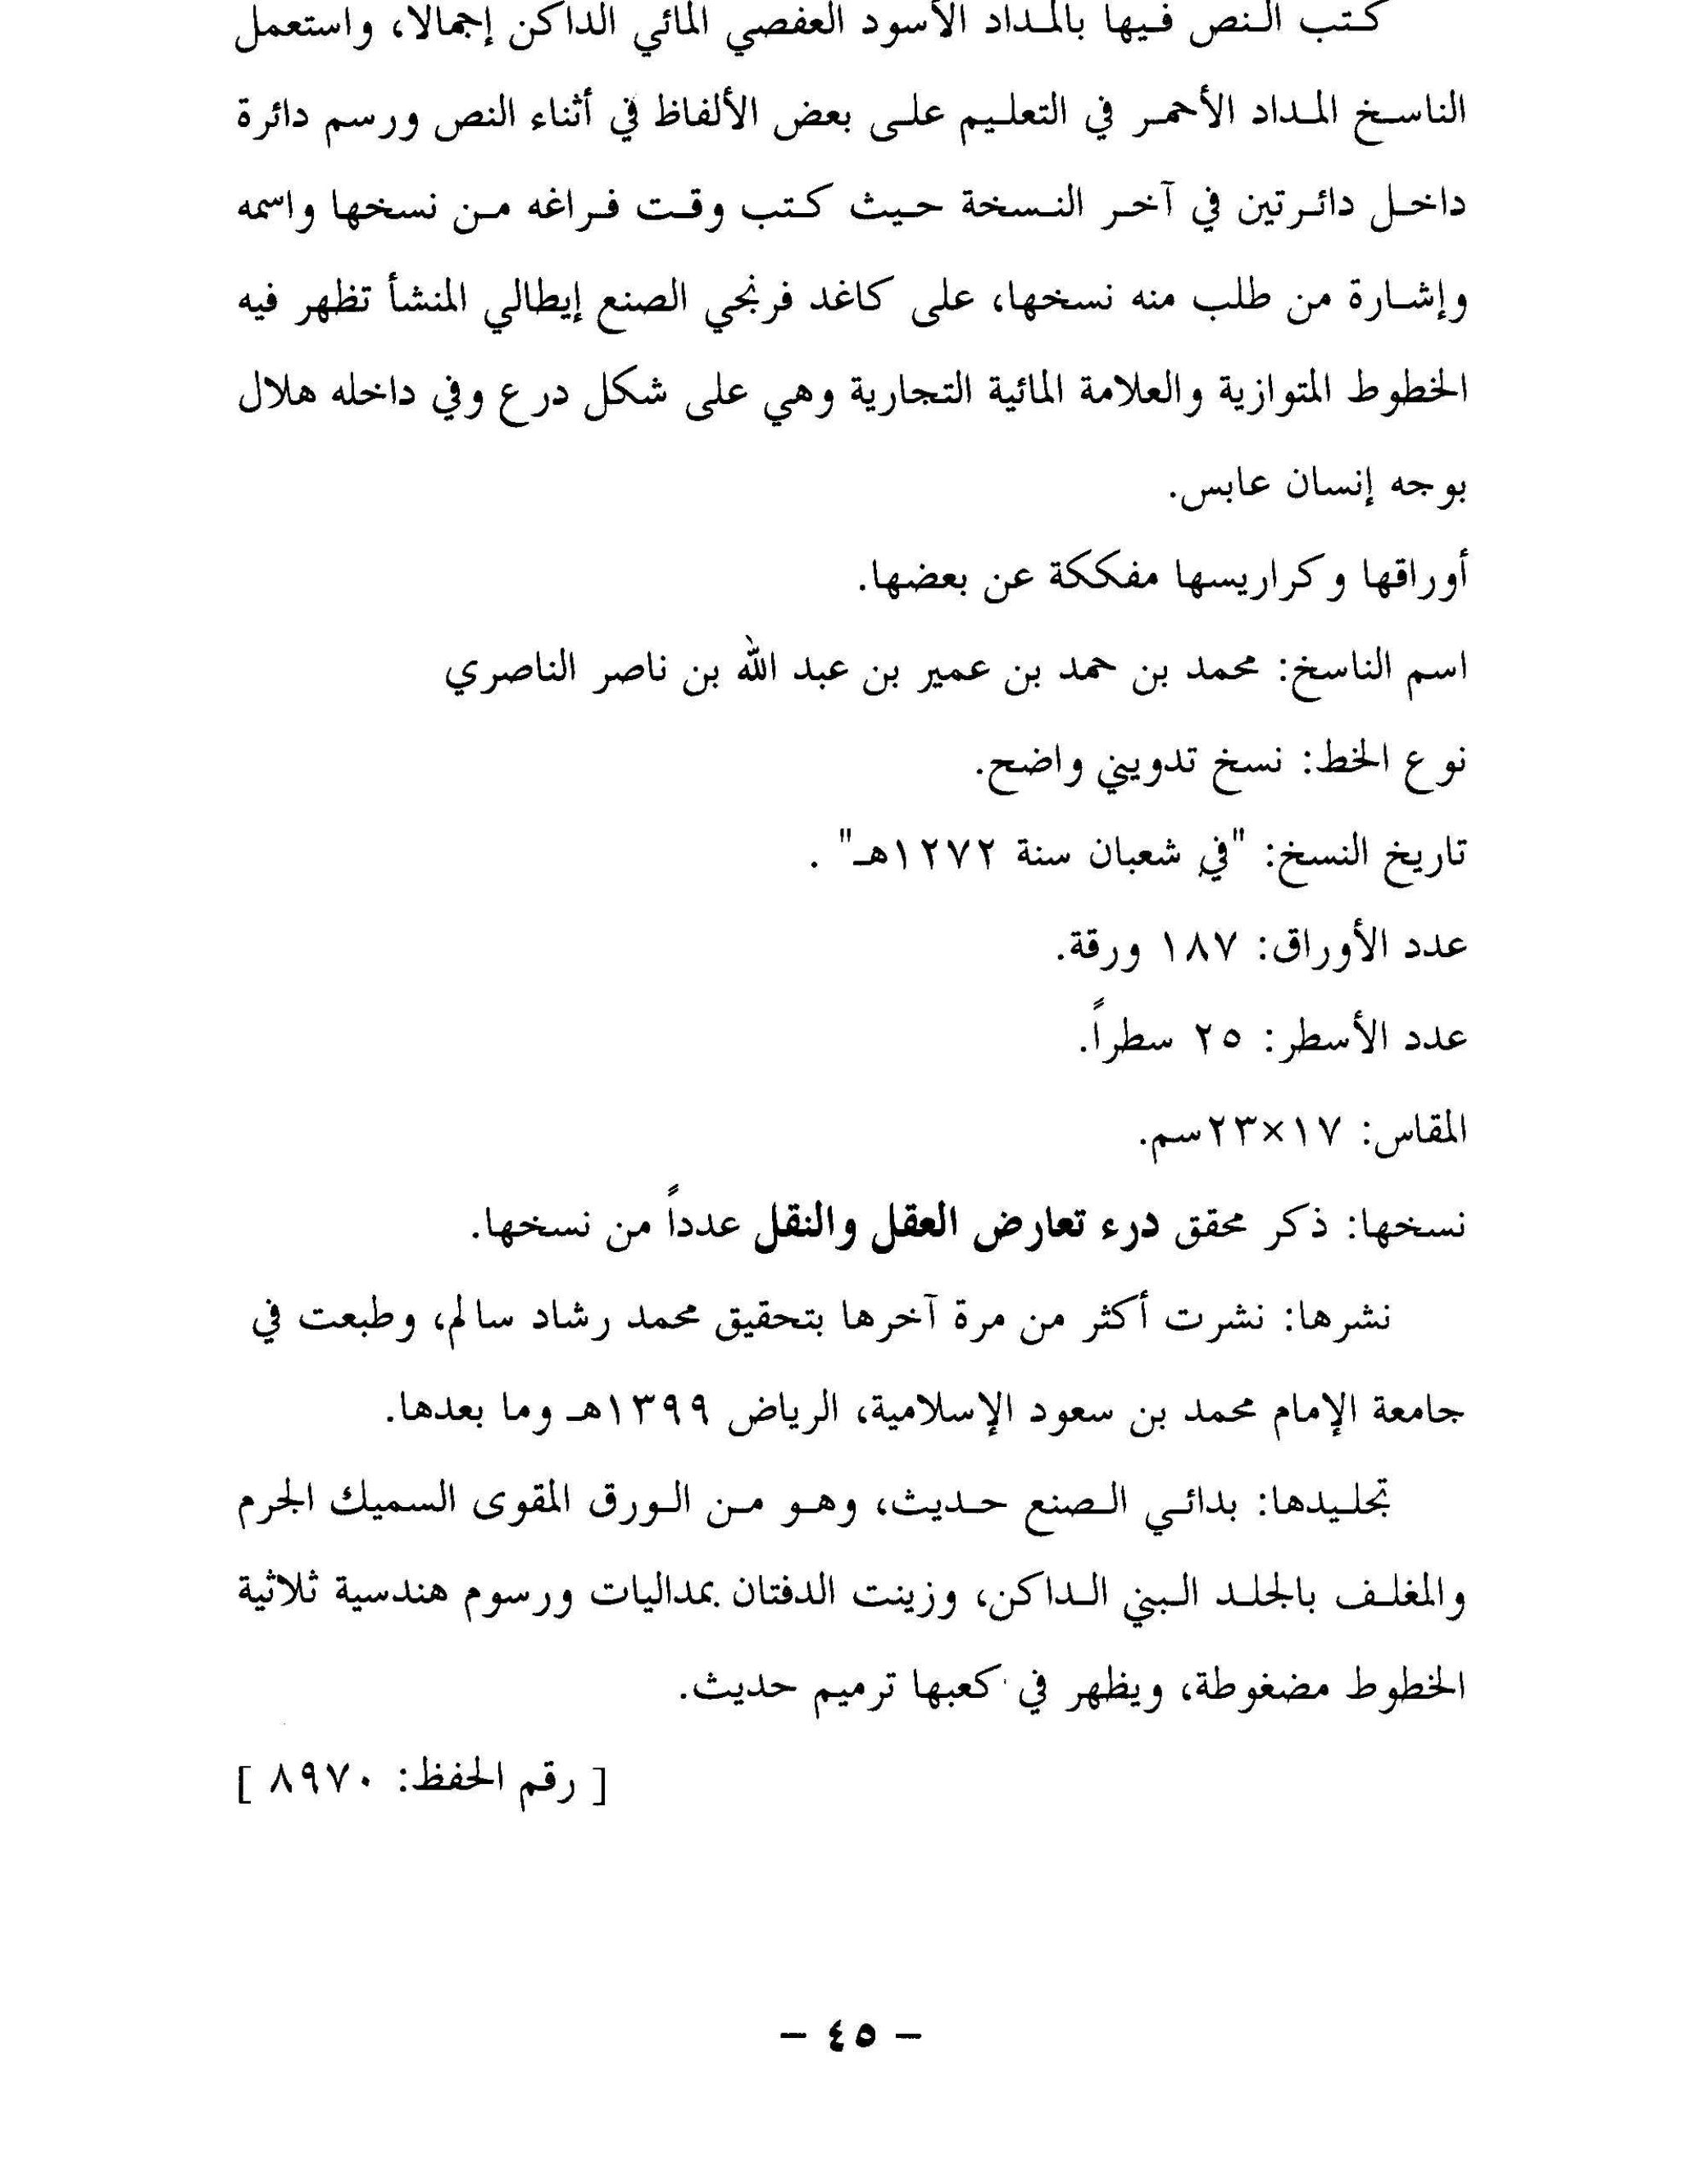 كتب النص فيها بالمداد الأسود العفصي المائي الداكن إجمالا، واستعمل
الناسخ المداد الأحمر في التعليم على بعض الألفاظ في أثناء النص ورسم دائرة
داخل دائرتين في آخر النسخة حيث كتب وقت فراغه من نسخها واسمه
وإشارة من طلب منه نسخها، على كاغد فرنجي الصنع إيطالي المنشأ تظهر فيه
الخطوط المتوازية والعلامة المائية التجارية وهي على شكل درع وفي داخله هلال
بوجه إنسان عابس.
أوراقها وكراريسها مفككة عن بعضها.
اسم الناسخ: محمد بن حمد بن عمير بن عبد الله بن ناصر الناصري
نوع الخط: نسخ تدويني واضح.
تاريخ النسخ: "في شعبان سنة ١٢٧٢هـ" .
عدد الأوراق: ١٨٧ ورقة.
عدد الأسطر: ٢٥ سطراً.
المقاس: ١٧×٢٣سم.
نسخها: ذكر محقق درء تعارض العقل والنقل عدداً من نسخها.
نشرها: نشرت أكثر من مرة آخرها بتحقيق محمد رشاد سالم، وطبعت في
جامعة الإمام محمد بن سعود الإسلامية، الرياض ١٣٩٩هـ وما بعدها.
تجليدها: بدائي الصنع حديث، وهو من الورق المقوى السميك الجرم
والمغلف بالجلد البني الداكن، وزينت الدفتان بمداليات ورسوم هندسية ثلاثية
الخطوط مضغوطة، ويظهر في كعبها ترميم حديث.
[ رقم الحفظ: ٨٩٧٠ ]
- ٤٥ -